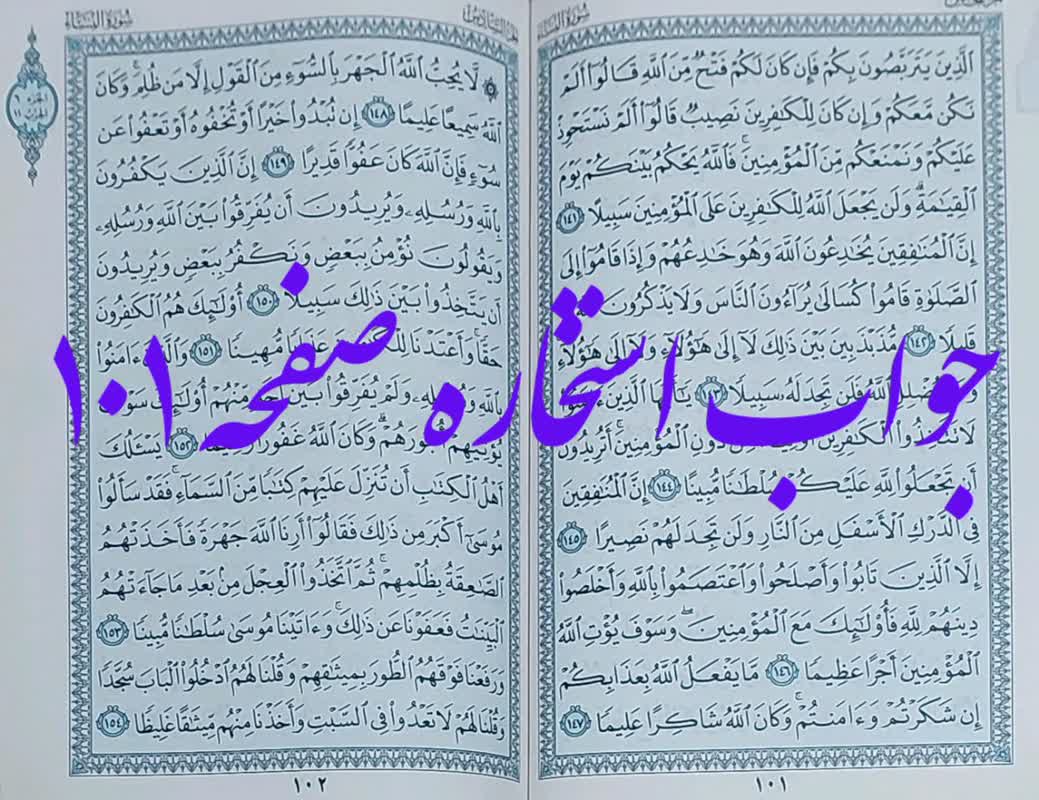 سورة النساء
ٱلَّذِينَ يَتَرَبَّصُونَ بِكُمْ فَإِن كَانَ لَكُمْ فَتْحٌ مِّنَ ٱللَّهِ قَالُوٓا۟ أَلَمْ
نَكُن مَّعَكُمْ وَإِن كَانَ لِلْكَٰفِرِينَ نَصِيبٌ قَالُوٓا۟ أَلَمْ نَسْتَحْوِذْ
عَلَيْكُمْ وَنَمْنَعْكُم مِّنَ ٱلْمُؤْمِنِينَ ۚ فَٱللَّهُ يَحْكُمُ بَيْنَكُمْ يَوْمَ
ٱلْقِيَٰمَةِ ۗ وَلَن يَجْعَلَ ٱللَّهُ لِلْكَٰفِرِينَ عَلَى ٱلْمُؤْمِنِينَ سَبِيلًا ١٤١
إِنَّ ٱلْمُنَٰفِقِينَ يُخَٰدِعُونَ ٱللَّهَ وَهُوَ خَٰدِعُهُمْ وَإِذَا قَامُوٓا۟ إِلَى
ٱلصَّلَوٰةِ قَامُوا۟ كُسَالَىٰ يُرَآءُونَ ٱلنَّاسَ وَلَا يَذْكُرُونَ
قَلِيلًا ١٤٢ مُّذَبْذَبِينَ بَيْنَ ذَٰلِكَ لَآ إِلَىٰ هَٰٓؤُلَآءِ وَلَآ إِلَىٰ هَٰٓؤُلَآءِ
ٱللَّهُ فَلَن تَجِدَ لَهُۥ سَبِيلًا ١٤٣ يَٰٓأَيُّهَا ٱلَّذِينَ
ٱلْكَٰفِرِينَ دُونِ ٱلْمُؤْمِنِينَ ۚ أَتُرِيدُونَ
أَن تَجْعَلُوا۟ لِلَّهِ عَلَيْكُمْ سُلْطَٰنًا مُّبِينًا ١٤٤ إِنَّ ٱلْمُنَٰفِقِينَ
فِى ٱلدَّرْكِ ٱلْأَسْفَلِ مِنَ ٱلنَّارِ وَلَن تَجِدَ لَهُمْ نَصِيرًا ١٤٥
إِلَّا ٱلَّذِينَ تَابُوا۟ وَأَصْلَحُوا۟ وَٱعْتَصَمُوا۟ بِٱللَّهِ وَأَخْلَصُوا۟
دِينَهُمْ لِلَّهِ فَأُو۟لَٰٓئِكَ مَعَ ٱلْمُؤْمِنِينَ ۖ وَسَوْفَ يُؤْتِ ٱللَّهُ
ٱلْمُؤْمِنِينَ أَجْرًا عَظِيمًا ١٤٦ مَّا يَفْعَلُ ٱللَّهُ بِعَذَابِكُمْ
إِن شَكَرْتُمْ وَءَامَنتُمْ ۚ وَكَانَ ٱللَّهُ شَاكِرًا عَلِيمًا ١٤٧
١٠١
سورة النساء
لَّا يُحِبُّ ٱللَّهُ ٱلْجَهْرَ بِٱلسُّوٓءِ مِنَ ٱلْقَوْلِ إِلَّا مَن ظُلِمَ ۚ وَكَانَ
ٱللَّهُ سَمِيعًا عَلِيمًا ١٤٨ إِن تُبْدُوا۟ خَيْرًا أَوْ تُخْفُوهُ أَوْ تَعْفُوا۟ عَن
سُوٓءٍ فَإِنَّ ٱللَّهَ كَانَ عَفُوًّا قَدِيرًا ١٤٩ إِنَّ ٱلَّذِينَ يَكْفُرُونَ
بِٱللَّهِ وَرُسُلِهِۦ وَيُرِيدُونَ أَن يُفَرِّقُوا۟ بَيْنَ ٱللَّهِ وَرُسُلِهِۦ
وَيَقُولُونَ نُؤْمِنُ بِبَعْضٍ وَنَكْفُرُ بِبَعْضٍ وَيُرِيدُونَ
أَن يَتَّخِذُوا۟ بَيْنَ ذَٰلِكَ سَبِيلًا ١٥٠ أُو۟لَٰٓئِكَ هُمُ ٱلْكَٰفِرُونَ
حَقًّا ۚ وَأَعْتَدْنَا مُّهِينًا ١٥١ وَٱلَّذِينَ ءَامَنُوا۟
بِٱللَّهِ وَرُسُلِهِۦ وَلَمْ يُفَرِّقُوا۟ بَيْنَ أَحَدٍ مِّنْهُمْ أُو۟لَٰٓئِكَ سَوْفَ
يُؤْتِيهِمْ أُجُورَهُمْ ۗ وَكَانَ ٱللَّهُ غَفُورًا ١٥٢ يَسْـَٔلُكَ
أَهْلُ ٱلْكِتَٰبِ أَن تُنَزِّلَ عَلَيْهِمْ كِتَٰبًا مِّنَ ٱلسَّمَآءِ ۚ فَقَدْ سَأَلُوا۟
مُوسَىٰٓ أَكْبَرَ مِن ذَٰلِكَ فَقَالُوٓا۟ أَرِنَا ٱللَّهَ جَهْرَةً فَأَخَذَتْهُمُ
ٱلصَّٰعِقَةُ بِظُلْمِهِمْ ۚ ثُمَّ ٱتَّخَذُوا۟ ٱلْعِجْلَ مِنۢ بَعْدِ مَا جَآءَتْهُمُ
ٱلْبَيِّنَٰتُ فَعَفَوْنَا عَن ذَٰلِكَ ۚ وَءَاتَيْنَا مُوسَىٰ سُلْطَٰنًا مُّبِينًا ١٥٣
وَرَفَعْنَا فَوْقَهُمُ ٱلطُّورَ بِمِيثَٰقِهِمْ وَقُلْنَا لَهُمُ ٱدْخُلُوا۟ ٱلْبَابَ سُجَّدًا
وَقُلْنَا لَهُمْ لَا تَعْدُوا۟ فِى ٱلسَّبْتِ وَأَخَذْنَا مِنْهُم مِّيثَٰقًا غَلِيظًا ١٥٤
١٠٢
جواب استخاره صفحه ۱۰۱